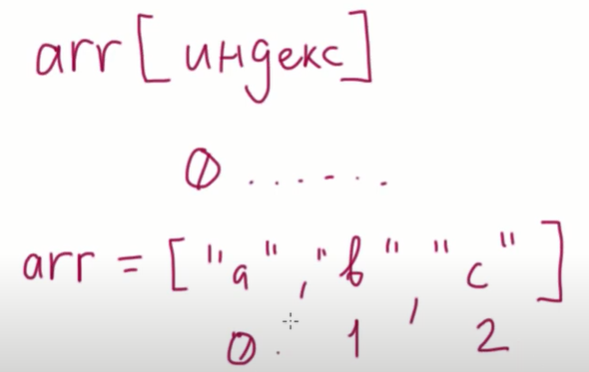 arr [индекс]
0 . . . - . .
arr = ["a", "b", "c"]
0 . 1 2